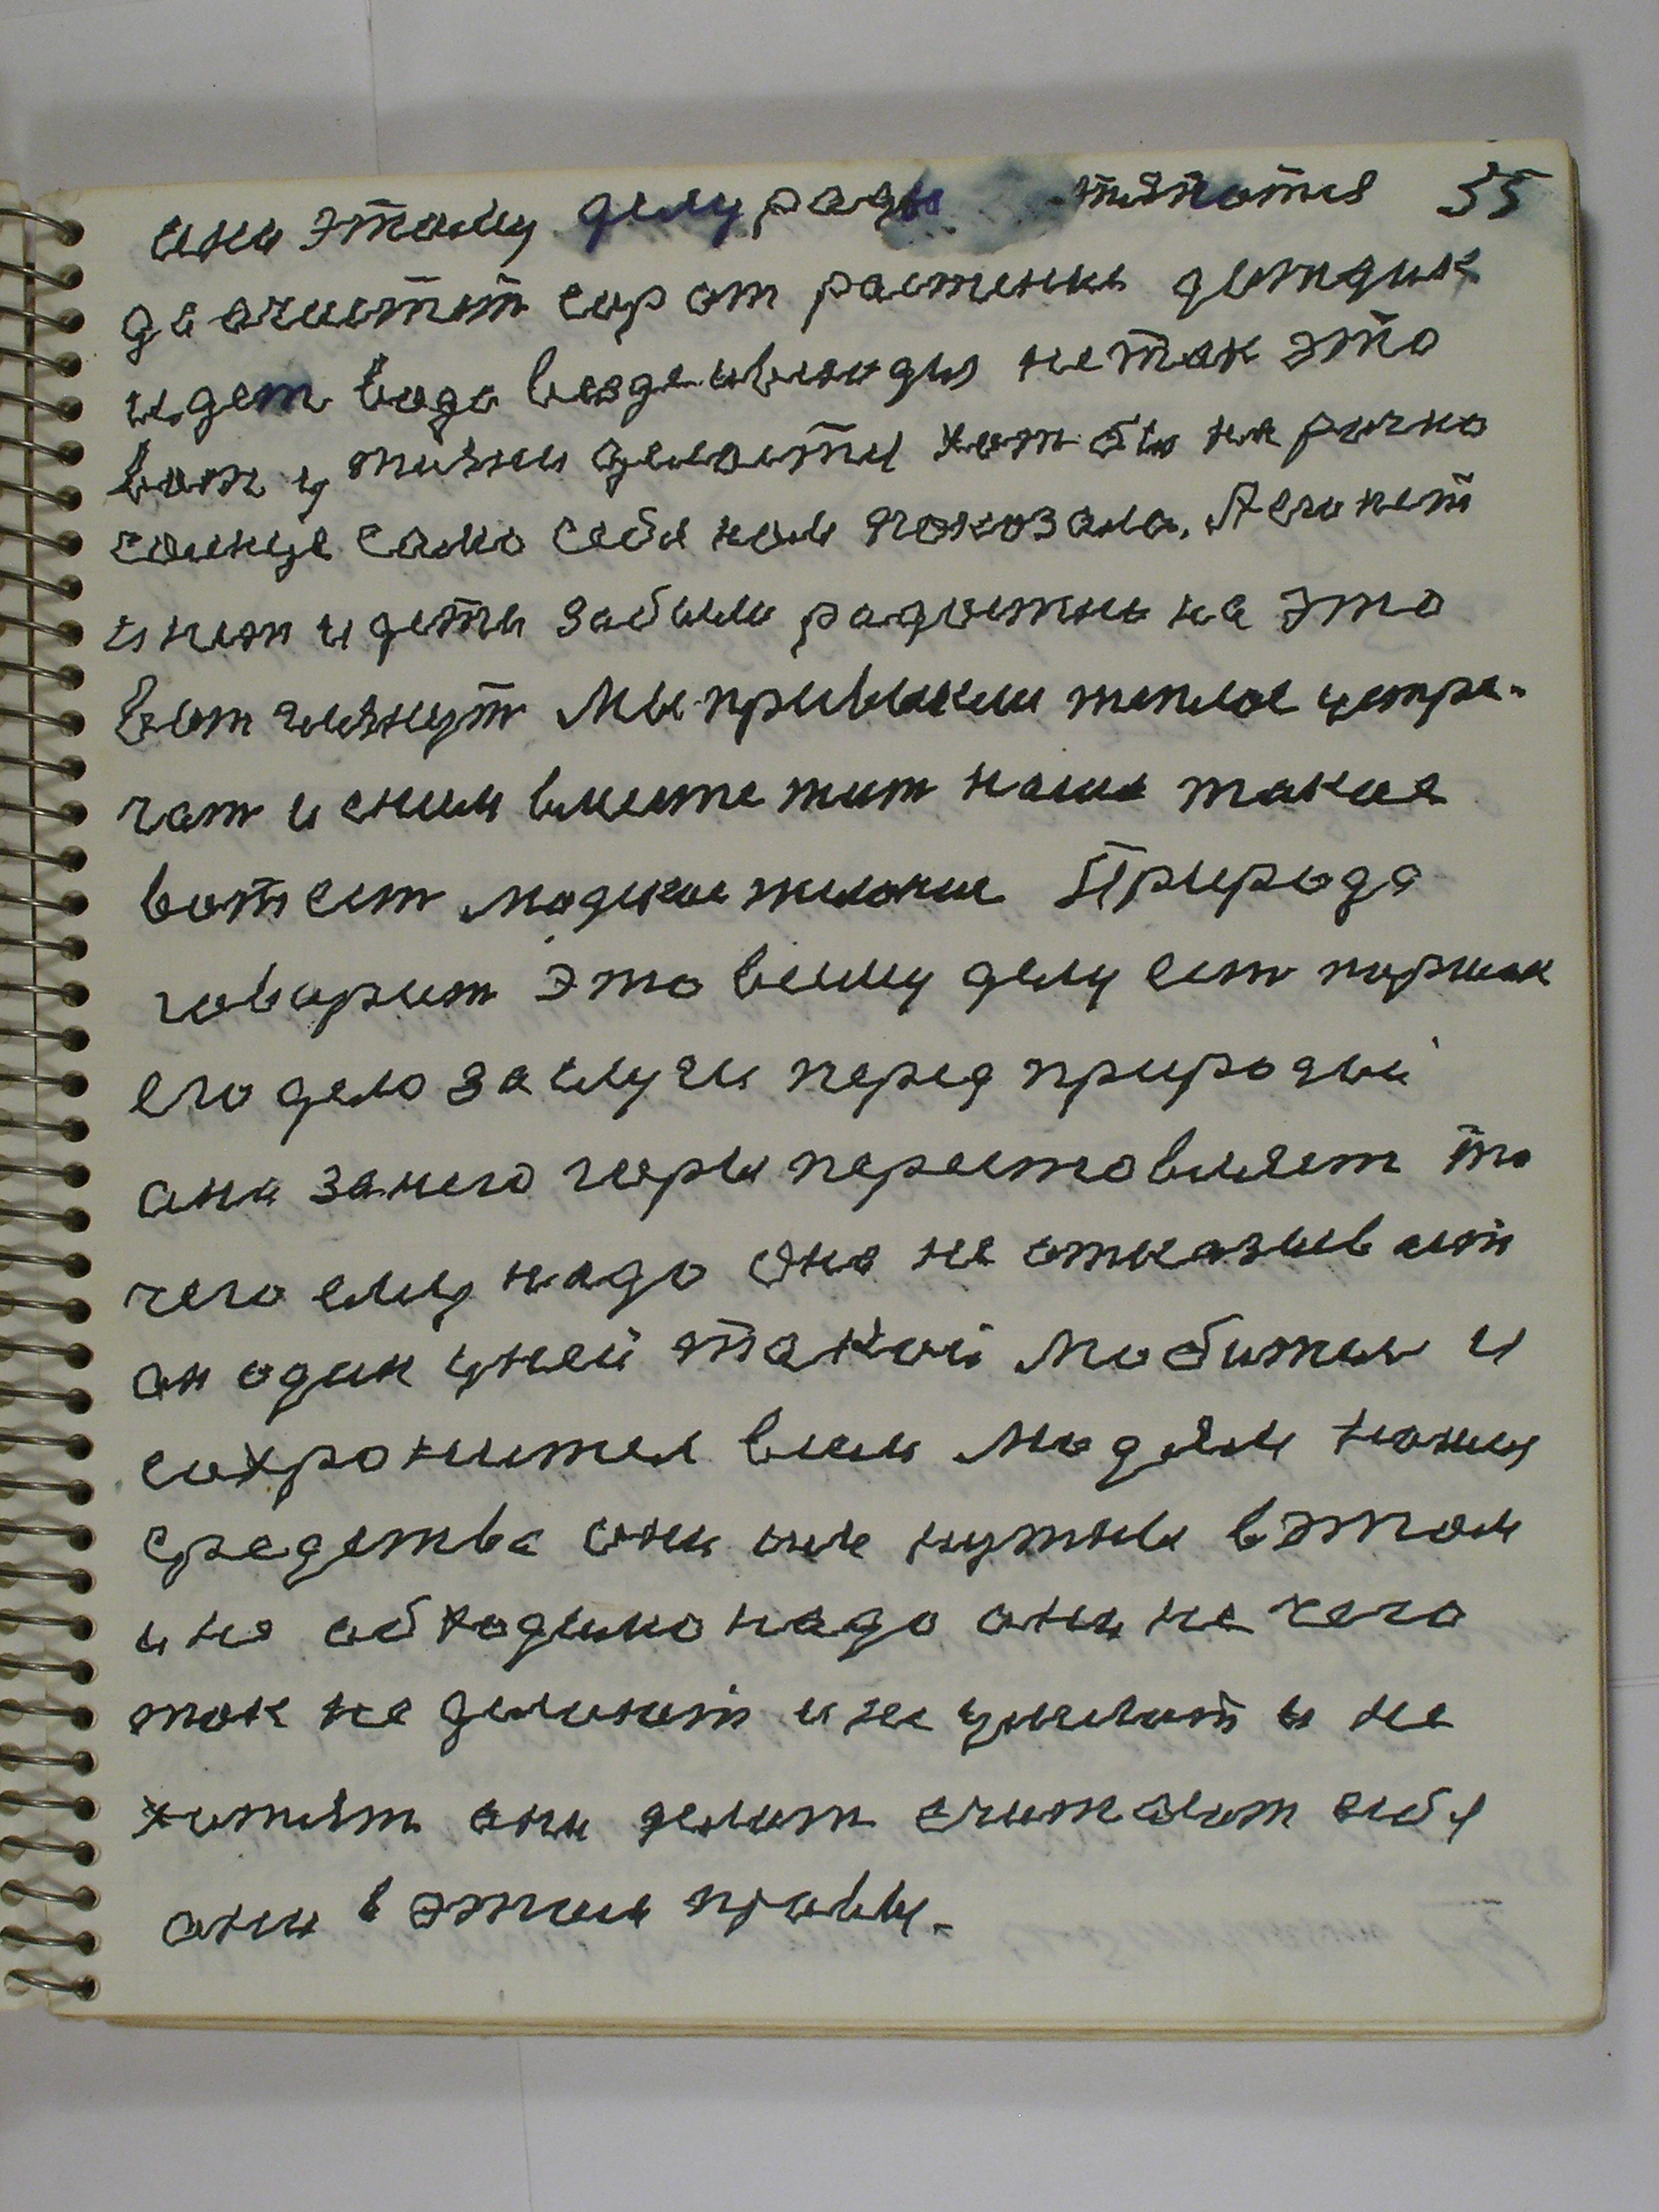 они этому делу рады 35
да очистит сор от растении дождик
идет вода нетак это
вот и делоэти хот бы не рачно
солнце само себя нам показала. А его нет
и нет и дети забыли радостны на это
вот глянут Мы привыкли теплое устре-
чат и сним вместе жит наше такие
вот ест людское жилочие Природа
говорит это всему делу ест поржик
его дело заслуги перед природый
она занего горы переставляет то
чего ему надо Она не отказывает
он один уней такой Любител и
сохронител всем Людям нашы
средства они им нужны вэтом
и не обходимо надо они не чего
так не делоют и не умеют и не
хотят они делают счытают себя
они в этим правы.